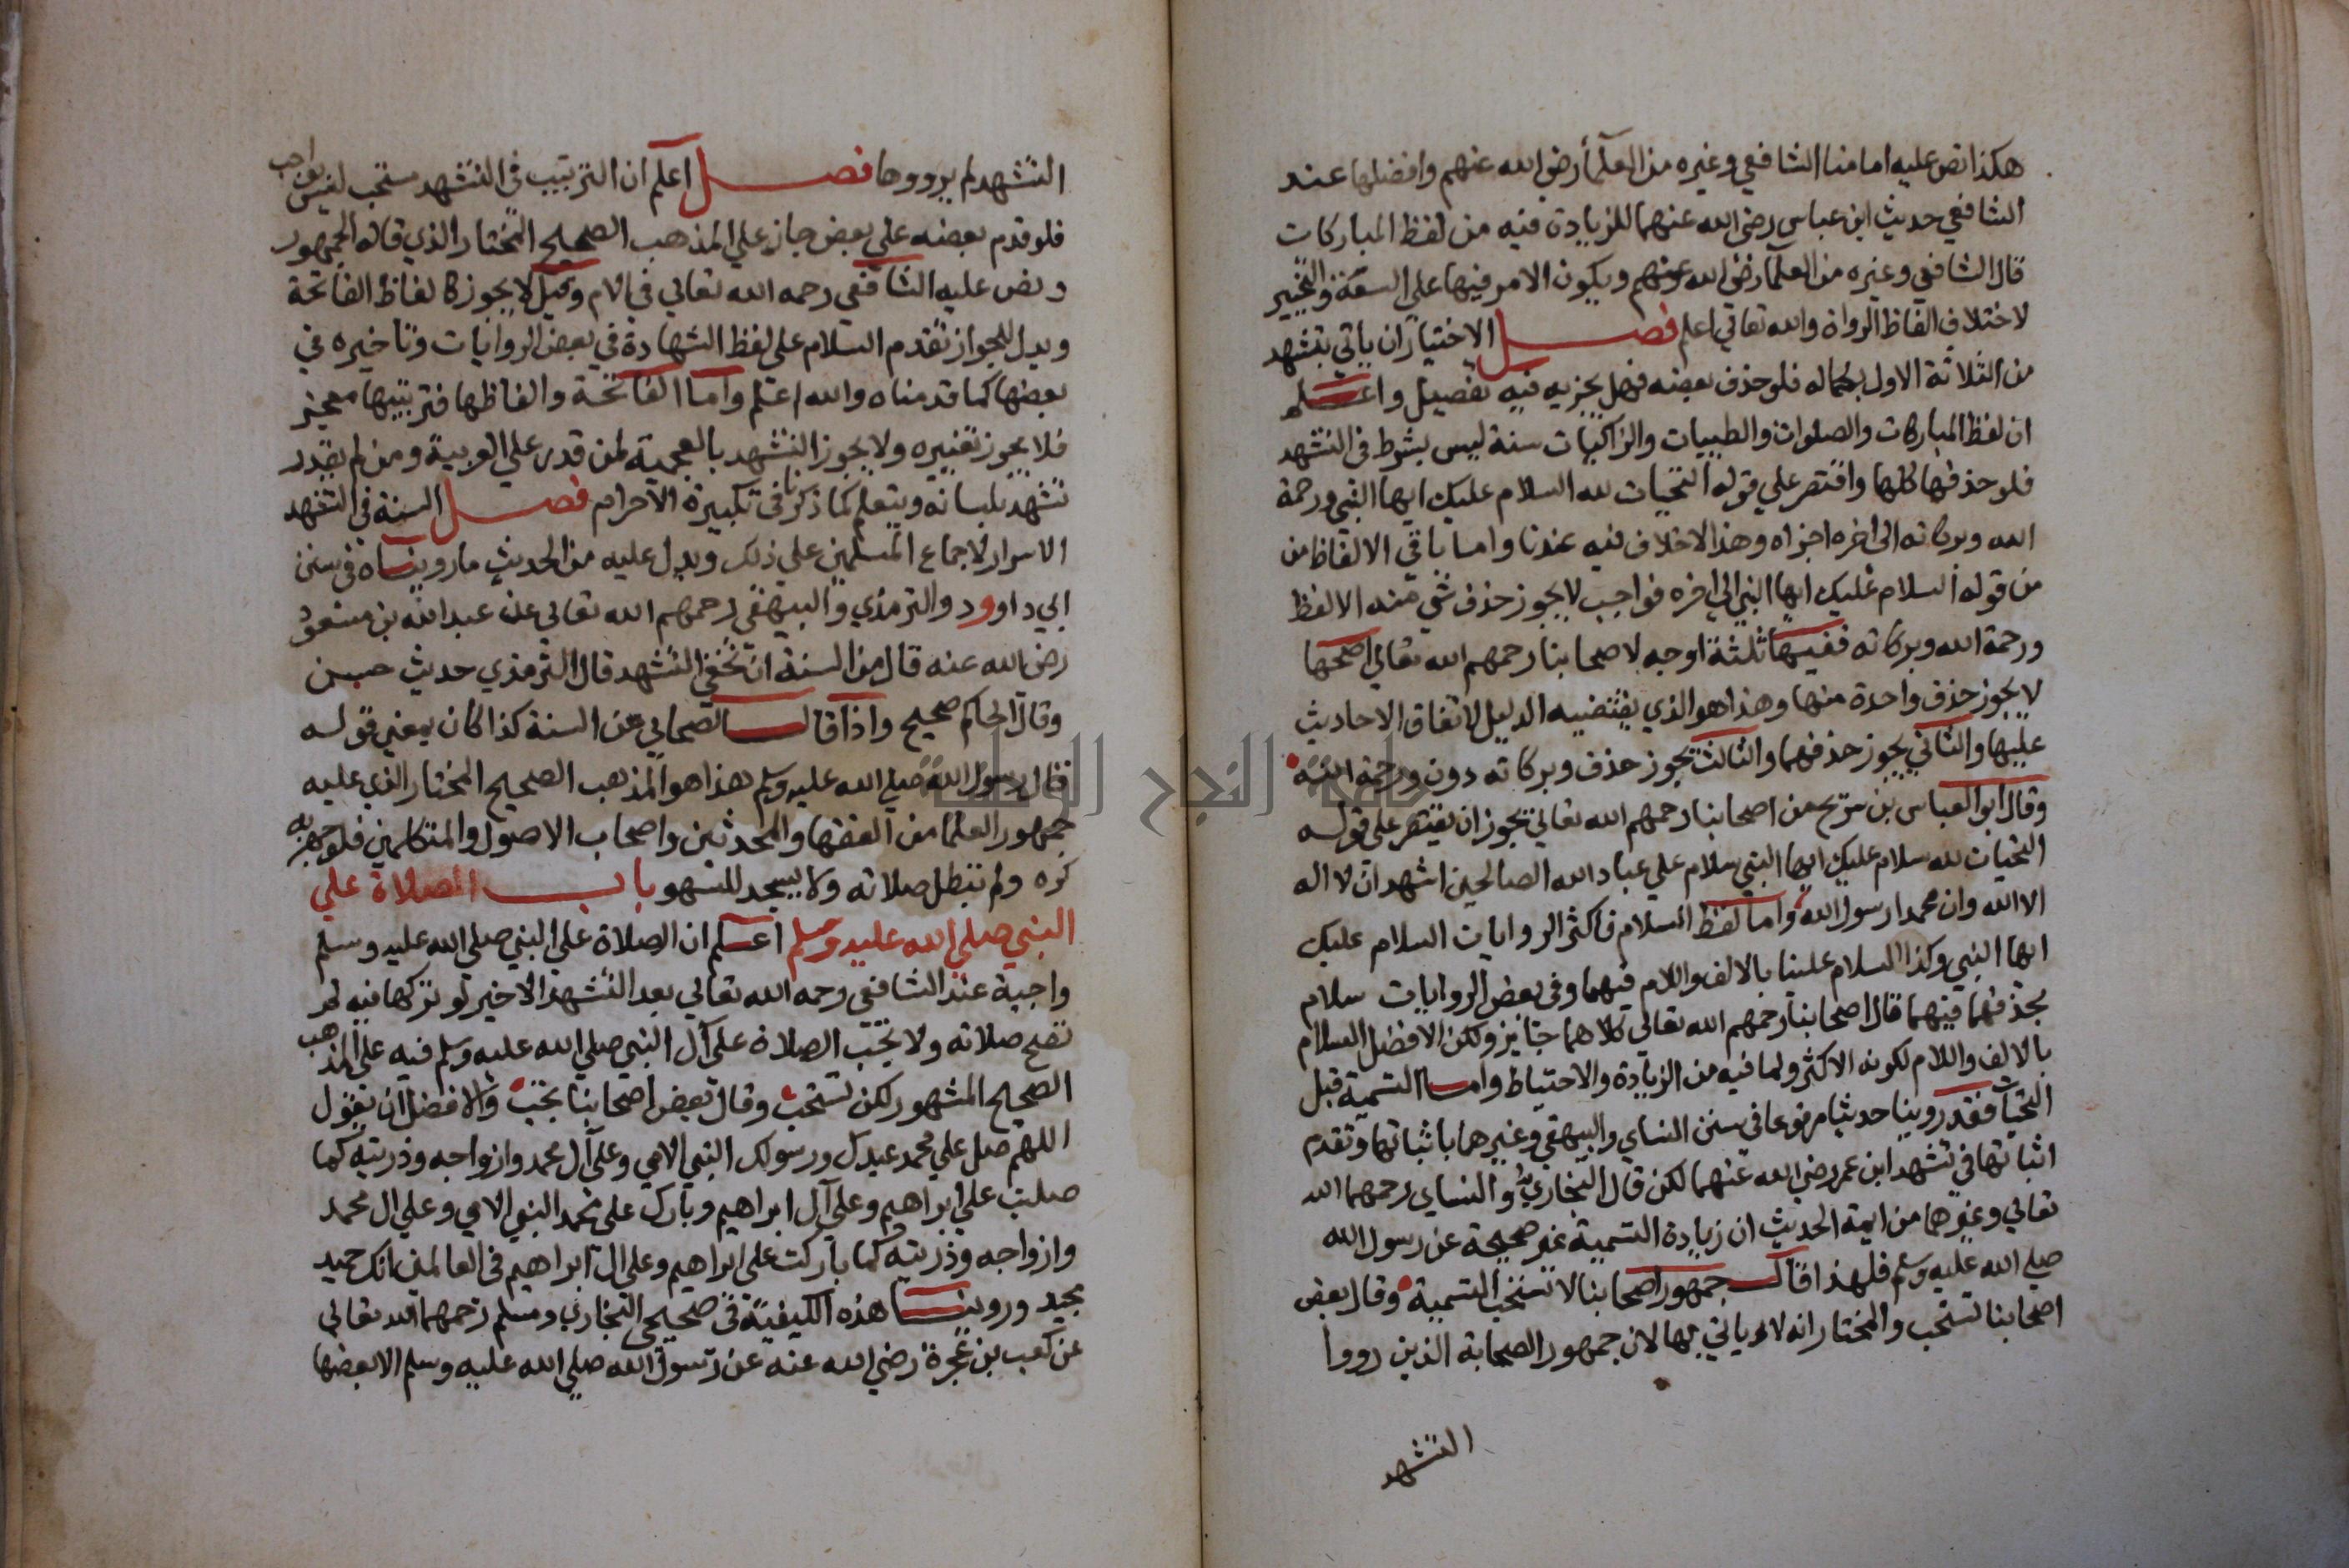 هكذا نص عليه امامنا الشافعي وغيره من العلمآ رضي الله عنهم وافضلها عند
الشافعي حديث ابن عباس رضي الله عنهما للزيادة فيه من لفظ المباركات
قال الشافعي وغيره من العلمآ رضي الله عنهم ويكون الامر فيها علي السعة والتخيير
لاختلاف الفاظ الرواة والله تعالي اعلم فصل الاختيار ان ياتي بتشهد
من الثلاثة الاول بكماله فلو حذف بعضه فهل يجزيه فيه تفصيل واعلم
ان لفظ المباركات والصلوات والطيبات والزاكيات سنة ليس بشرط في التشهد
فلو حذفها كلها واقتصر علي قوله التحيات لله السلام عليك ايها النبي ورحمة
الله وبركاته الي اخره اجزاه وهذا لاخلاف فيه عندنا واما باقي الالفاظ من
من قوله السلام عليك ايها النبي الي اخره فواجب لا يجوز حذف شي منه الا لفظ
ورحمة الله وبركاته ففيهما ثلثة اوجه لاصحابنا رحمهم الله تعالي اصحها
لا يجوز حذف واحدة منها وهذا هو الذي يقتضيه الدليل لاتفاق الاحاديث
عليها والثاني يجوز حذفهما والثالث يجوز حذف وبركاته دون ورحمة الله
وقال ابو العباس بن سريج من اصحابنا رحمهم الله تعالي يجوز ان يقتصر علي قوله
التحيات لله سلام عليك ايها النبي سلام علي عباد الله الصالحين اشهد ان لا اله
الا الله وان محمدا رسول الله واما لفظ السلام فاكثر الروايات السلام عليك
ايها النبي وكذا السلام علينا بالالف واللام فيهما وفي بعض الروايات سلام
بحذفهما فيهما قال اصحابنا رحمهم الله تعالي كلاهما جائز ولكن الافضل السلام
بالالف واللام لكونه الاكثر ولما فيه من الزيادة والاحتياط واما التسمية قبل
التحيات فقد روينا حديثا مرفوعا في سنن النساي والبيهقي وغيرهما باثباتها وتقدم
اثباتها في تشهد ابن عمر رضي الله عنهما لكن قال البخاري والنساي رحمهما الله
تعالي وغيرهما من ايمة الحديث ان زيادة التسمية غير صحيحة عن رسول الله
صلي الله عليه وسلم فلهذا قال جمهور اصحابنا لا تستحب التسمية وقال بعض
اصحابنا تستحب والمختار انه لا ياتي بها لان جمهور الصحابة الذين رووا
التشهد
التشهد لم يرووها فصل اعلم ان الترتيب في التشهد مستحب ليس بواجب
فلو قدم بعضه علي بعض جاز علي المذهب الصحيح المختار الذي قاله الجمهور
ونص عليه الشافعي رحمه الله تعالي في الام وقيل لا يجوز كالفاظ الفاتحة
ويدل للجواز تقدم السلام علي لفظ الشهادة في بعض الروايات وتاخيره في
بعضها كما قدمناه والله اعلم واما الفاتحة والفاظها فترتيبها معجز
فلا يجوز تغييره ولا يجوز التشهد بالعجمية لمن قدر علي العربية ومن لم يقدر
تشهد بلسانه ويتعلم كما ذكرنا في تكبيرة الاحرام فصل السنة في التشهد
الاسرار لاجماع المسلمين علي ذلك ويدل عليه من الحديث ما رويناه في سنن
ابي داوود والترمذي والبيهقي رحمهم الله تعالي عن عبد الله بن مسعود
رضي الله عنه قال من السنة ان تخفي التشهد قال الترمذي حديث حسن
وقال الحاكم صحيح واذا قال الصحابي من السنة كذا كان بمعني قوله
قال رسول الله صلي الله عليه وسلم هذا هو المذهب الصحيح المختار الذي عليه
جمهور العلما من الفقها والمحدثين واصحاب الاصول والمتكلمين فلو جهر به
كره ولم تبطل صلاته ولا يسجد للسهو باب الصلاة علي
النبي صلي الله عليه وسلم اعلم ان الصلاة علي النبي صلي الله عليه وسلم
واجبة عند الشافعي رحمه الله تعالي بعد التشهد الاخير لو تركها فيه لم
تصح صلاته ولا تجب الصلاة علي آل النبي صلي الله عليه وسلم فيه علي المذهب
الصحيح المشهور لكن تستحب وقال بعض اصحابنا تجب والافضل ان يقول
اللهم صل علي محمد عبدك ورسولك النبي الامي وعلي آل محمد وازواجه وذريته كما
صليت علي ابراهيم وعلي آل ابراهيم وبارك علي محمد النبي الامي وعلي ال محمد
وازواجه وذريته كما باركت علي ابراهيم وعلي ال ابراهيم في العالمين انك حميد
مجيد وروينا هذه الكيفية في صحيحي البخاري ومسلم رحمهما الله تعالي
عن كعب بن عجرة رضي الله عنه عن رسول الله صلي الله عليه وسلم الا بعضها
جامعة النجاح الوطنية